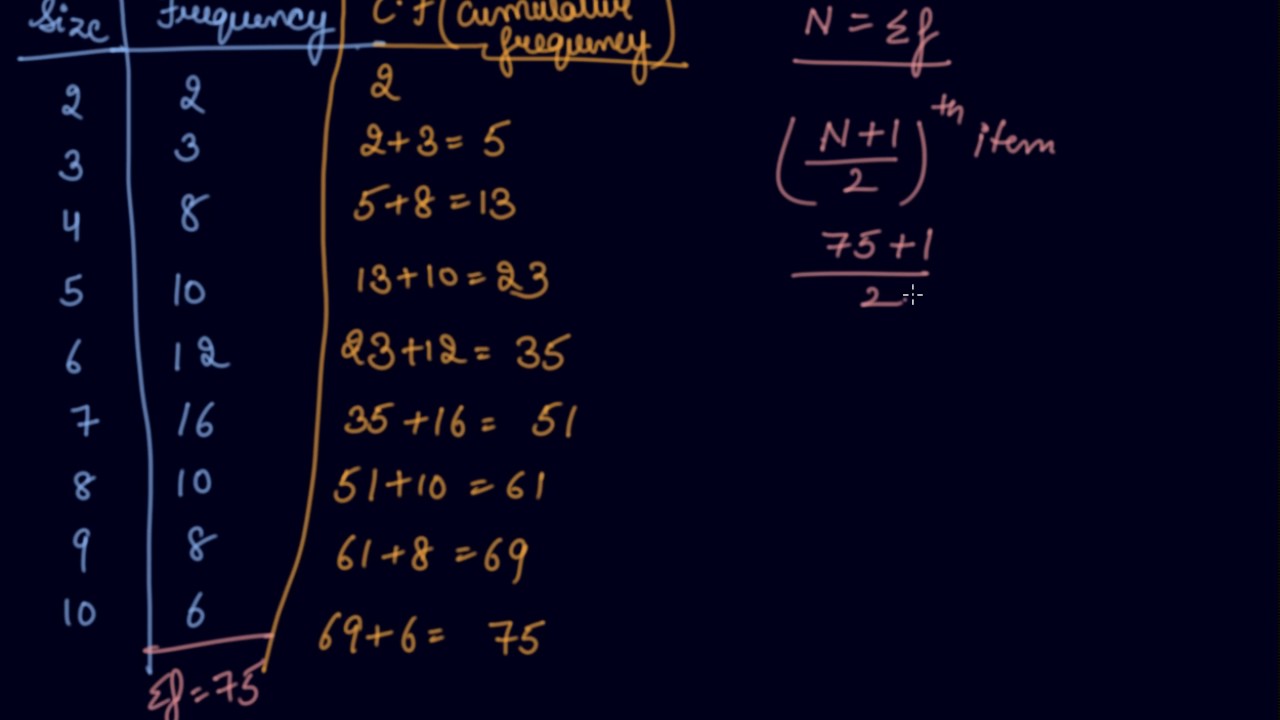 Size Frequency C.f (Cumulative frequency)
2 2 2
3 3 2+3= 5
4 8 5+8=13
5 10 13+10=23
6 12 23+12= 35
7 16 35+16= 51
8 10 51+10=61
9 8 61+8=69
10 6 69+6= 75
Σf=75
N=Σf
(N+1/2)th item
75+1
2